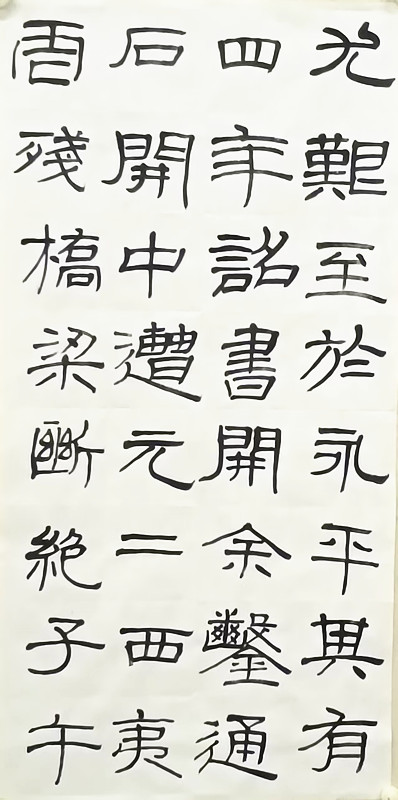 尤艱至於永平其有
四年詔書開余鑿通
石開中遭元二西夷
虐殘橋梁斷絶子午